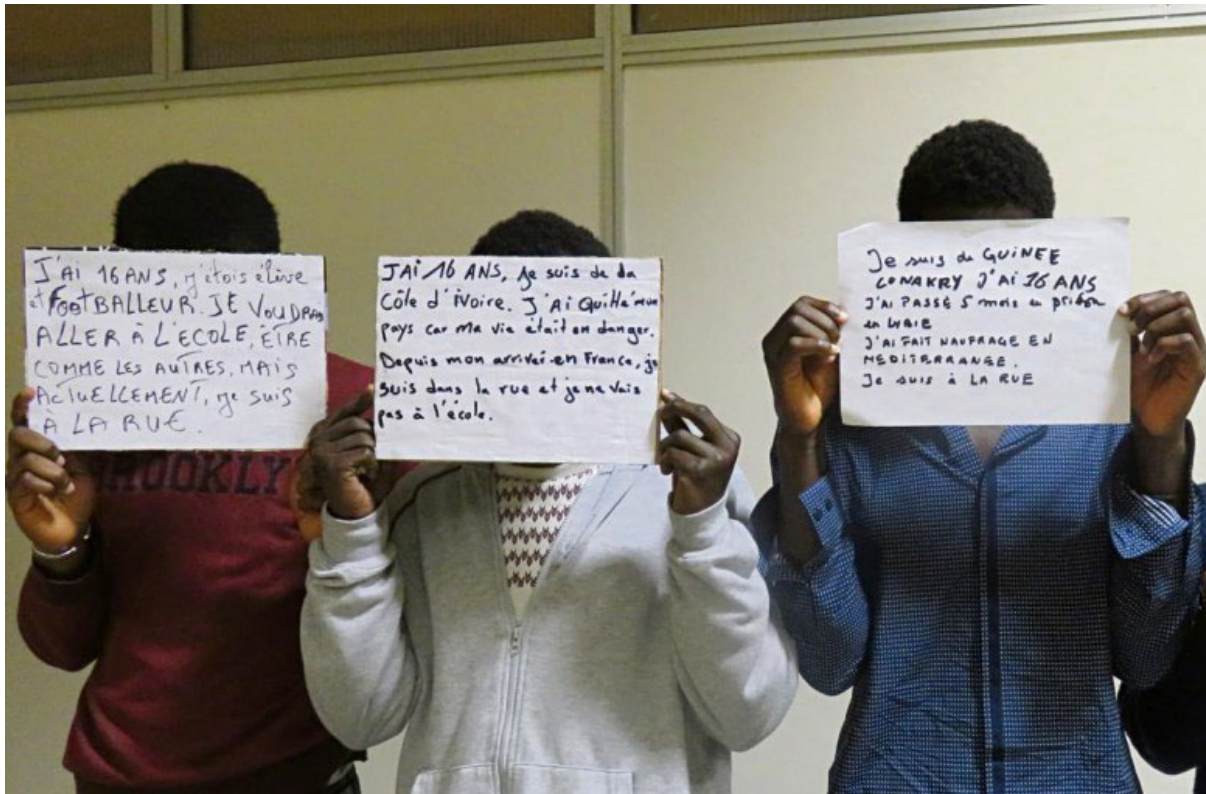 J'AI 16 ANS, j'étois élève
et FOOTBALLEUR. JE VOUDRAIS
ALLER À L'ECOLE, ÊTRE
COMME LES AUTRES, MAIS
ACTUELLEMENT, je suis
À LA RUE.
JAi 16 ANS, je suis de la
Côte d'ivoire. J'Ai Quitté mon
pays car ma vie était en danger.
Depuis mon arriveé en France, je
suis dans la rue et je ne vais
pas à l'école.
Je suis de GUINEE
CONAKRY J'AI 16 ANS
J'AI PASSÉ 5 mois en prison
en LYBIE
J'AI FAIT NAUFRAGE EN
MEDITERRANGE.
Je suis à LA RUE